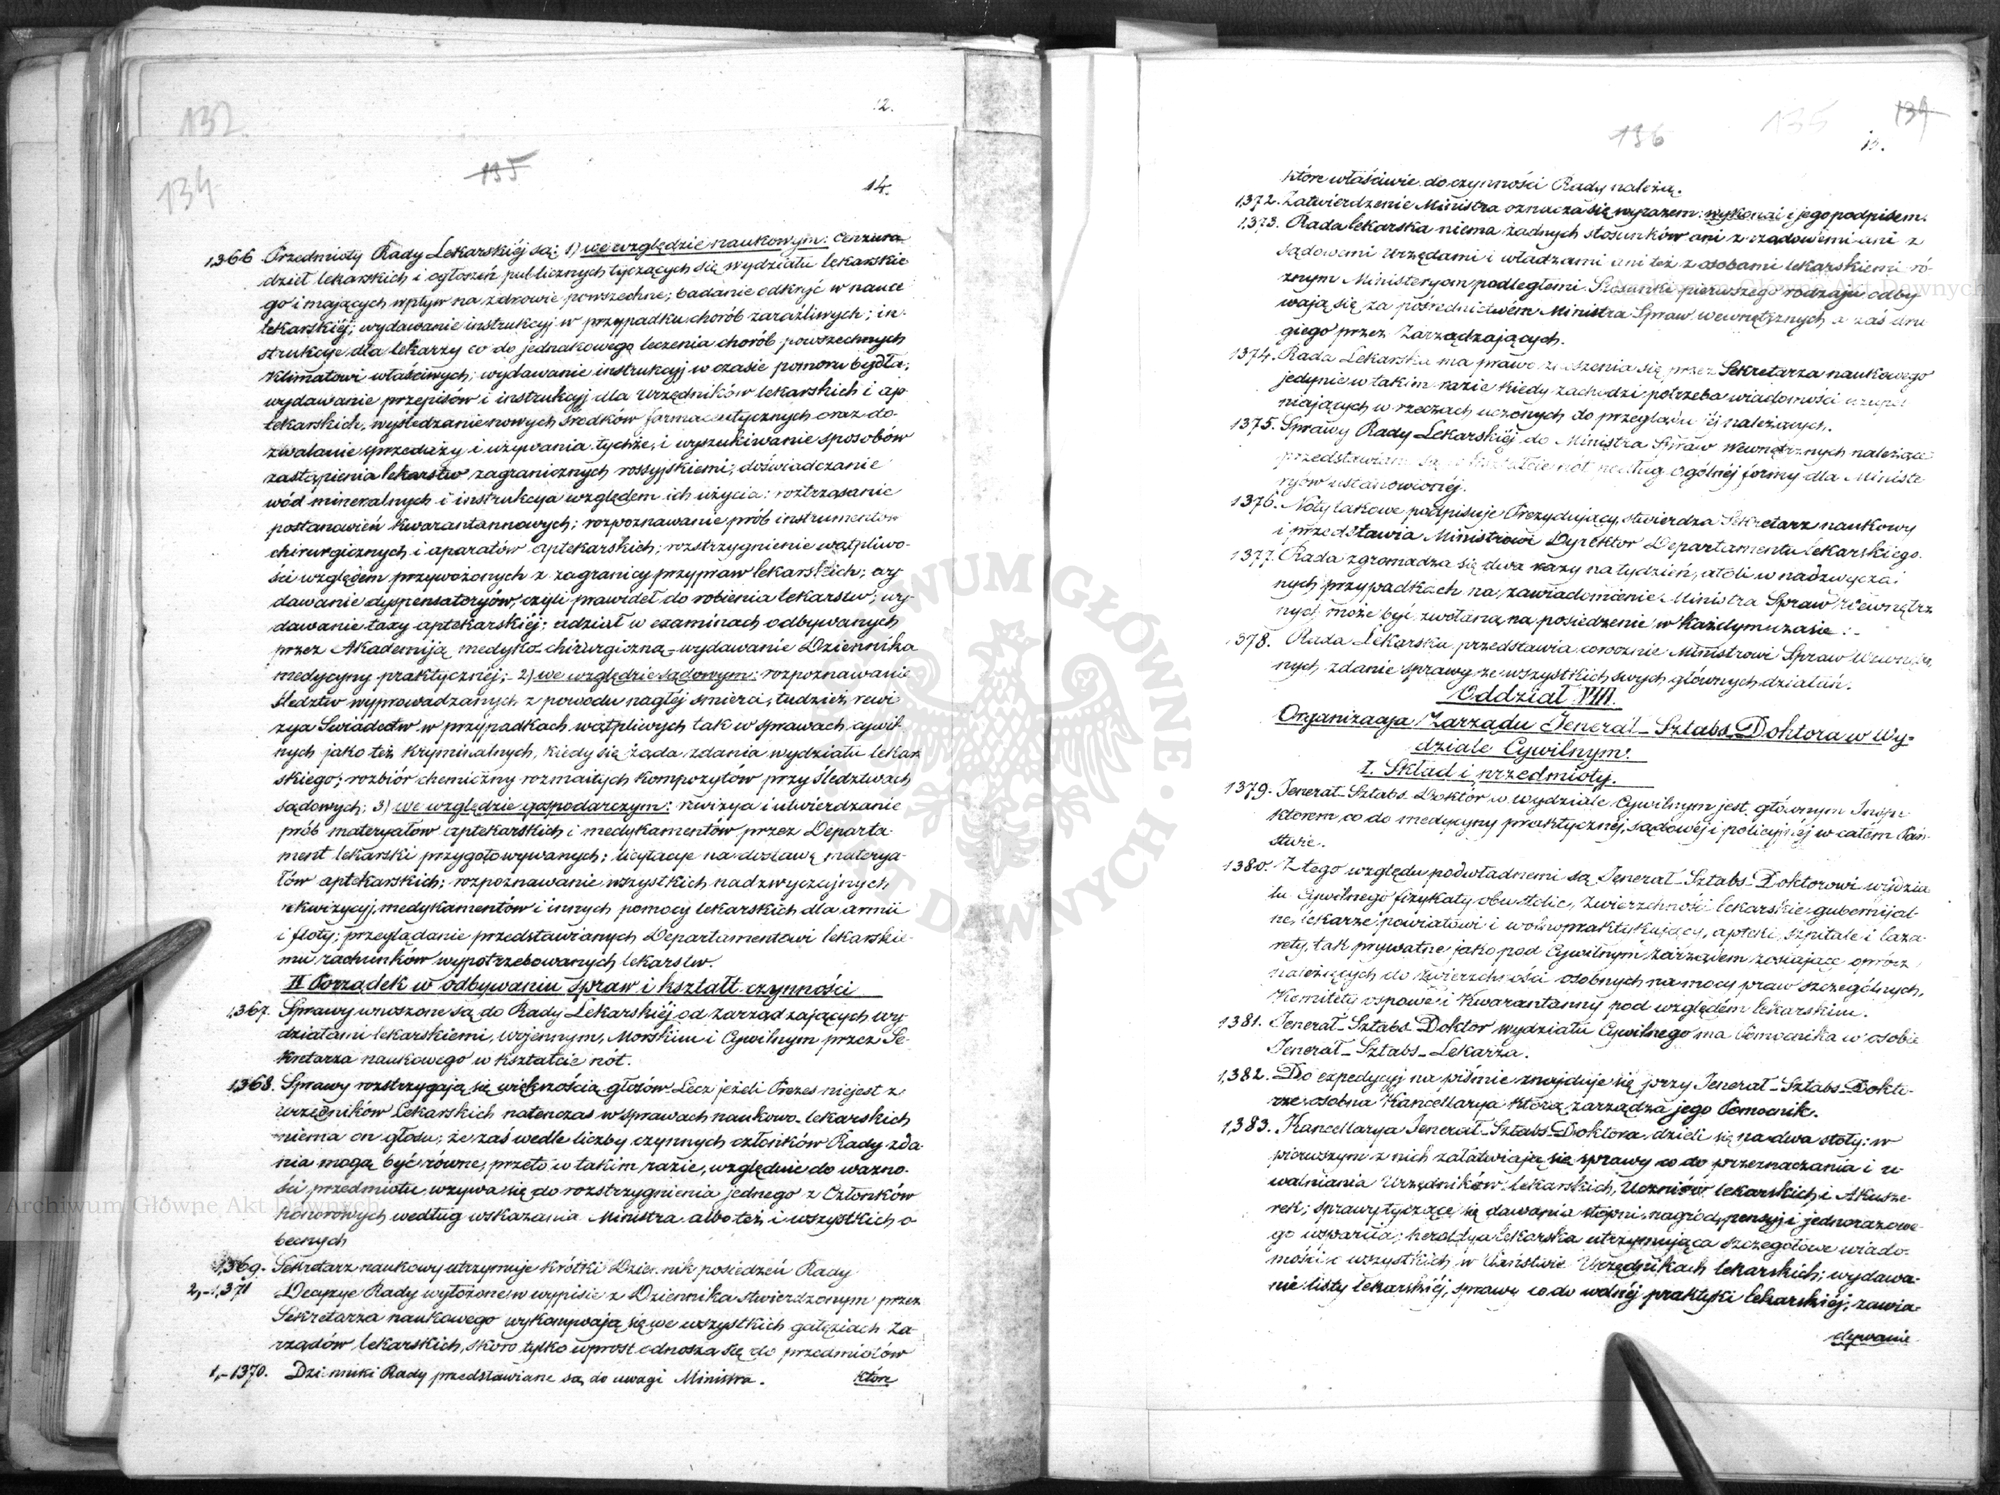 132.
12.
134
135
14.
1,366 Przedmioty Rady Lekarskiéj są: 1) we względzie naukowym: cenzura
dzieł lekarskich i ogłoszeń publicznych tyczących się wydziału lekarskie
go i mających wpływ na zdrowie powszechne; badanie odkryć w nauce
lekarskiéj; wydawanie instrukcyj w przypadku chorób zaraźliwych; in-
strukcye dla lekarzy co do jednakowego leczenia chorób powszechnych
klimatowi właściwych; wydawanie instrukcyj w czasie pomoru bydła;
wydawanie przepisów i instrukcyj dla Urzędników lekarskich i ap
tekarskich, wyśledzanie nowych środków farmaceutycznych oraz do-
zwalanie sprzedaży i używania tychże, i wyszukiwanie sposobów
zastąpienia lekarstw zagranicznych rossyjskiemi; doświadczanie
wód mineralnych i instrukcya względem ich użycia: roztrząsanie
postanowień kwarantannowych; rozpoznawanie prób instrumentów
chirurgicznych i aparatów aptekarskich; rozstrzygnienie wątpliwo-
ści względem przywożonych z zagranicy przypraw lekarskich; wy
dawanie dyspensatoryów, czyli prawideł do robienia lekarstw; wy-
dawanie taxy aptekarskiéj; udział w examinach odbywanych
przez Akademiją medyko-chirurgiczną - wydawanie Dziennika
medycyny praktycznéj; - 2) we względzie sądowym: rozpoznawanie
śledztw wyprowadzanych z powodu nagłéj śmierci, tudzież rewi
zya Świadectw w przypadkach wątpliwych tak w sprawach cywil-
nych jako też kryminalnych, kiedy się żąda zdania wydziału lekar
skiego; rozbiór chemiczny rozmaitych kompozytów przy śledztwach
sądowych; 3) we względzie gospodarczym: rewizya i utwierdzanie
prób materyałów aptekarskich i medykamentów przez Departa-
ment lekarski przygotowywanych; licytacye na dostawę materya-
łów aptekarskich; rozpoznawanie wszystkich nadzwyczajnych
rekwizycyj, medykamentów i innych pomocy lekarskich dla armii
i floty; przeglądanie przedstawianych Departamentowi lekarskie-
mu rachunków wypotrzebowanych lekarstw.
II Porządek w odbywaniu spraw i kształt czynności
1,367. Sprawy wnoszone są do Rady Lekarskiéj od zarządzających wy
działami lekarskiemi, Wojennym, Morskim i Cywilnym przez Se-
kretarza naukowego w kształcie nót.
1,368. Sprawy rozstrzygają się większością głosów. Lecz jeżeli Prezes niejest z
urzędników Lekarskich natenczas w sprawach naukowo-lekarskich
niema on głosu; że zaś wedle liczby czynnych członków Rady zda
nia mogą być równe, przeto w takim razie, względnie do ważno-
ści przedmiotu, wzywa się do rozstrzygnienia jednego z Członków
honorowych według wskazania Ministra albo też i wszystkich o
becnych
1,369. Sekretarz naukowy utrzymuje krótki Dziennik posiedzeń Rady
2,-1,371 Decyzye Rady wyłożone w wypisie z Dziennika stwierdzonym przez
Sekretarza naukowego wykonywają się we wszystkich gałęziach Za-
rządów lekarskich, skoro tylko wprost odnoszą się do przedmiotów
1,-1370. Dzienniki Rady przedstawiane są do uwagi Ministra.
które
134
135
136
15.
które właściwie do czynności Rady należą.
1,372. Zatwierdzenie Ministra oznacza się wyrazem: wykonać i jego podpisem.
1,373. Rada lekarska niema żadnych stosunków ani z rządowemi ani z
sądowemi Urzędami i władzami ani też z osobami lekarskiemi ró-
żnym Ministeryom podległemi Stosunki pierwszego rodzaju odby
wają się za pośrednictwem Ministra Spraw wewnętrznych a zaś dru
giego przez Zarządzających.
1374. Rada Lekarska ma prawo znoszenia się przez Sekretarza naukowego
jedynie w takim razie kiedy zachodzi potrzeba wiadomości uzupeł
niających w rzeczach uczonych do przeglądu Jéj należących.
1375. Sprawy Rady Lekarskiéj do Ministra Spraw wewnętrznych należące
przedstawiane są w kształcie nót według ogólnéj formy dla Ministe
ryów ustanowionéj.
1376. Noty takowe podpisuje Prezydujący, stwierdza Sekretarz naukowy
i przedstawia Ministrowi Dyrektor Departamentu lekarskiego.
1377. Rada zgromadza się dwa razy na tydzień, atoli w nadzwyczaj
nych przypadkach na zawiadomienie Ministra Spraw Wewnętrz
nych może być zwołaną na posiedzenie w każdym czasie: -
1378. Rada Lekarska, przedstawia corocznie Ministrowi Spraw Wewnętrz
nych, zdanie sprawy ze wszystkich swych głównych działań.
Oddział VIII.
Organizacya Zarządu Jenerał-Sztabs-Doktora w Wy-
dziale Cywilnym.
I. Skład i przedmioty.
1379. Jenerał-Sztabs-Doktór w wydziale Cywilnym jest głównym Inspe
ktorem co do medycyny praktycznéj, sądowéj i policyjnéj w całém Pań-
stwie.
1,380. Z tego względu podwładnemi są Jenerał-Sztabs-Doktorowi wydzia
łu Cywilnego fizykaty obu stolic, zwierzchności lekarskie gubernijal-
ne, lekarze powiatowi i wolnopraktykujący, apteki, szpitale i laza-
rety, tak prywatne jako pod Cywilnym zarządem zostające oprócz
należących do zwierzchności osobnych na mocy praw szczególnych,
Komiteta ospowe i kwarantanny pod względem lekarskim.
1,381. Jenerał-Sztabs-Doktor wydziału Cywilnego ma Pomocnika w osobie
Jenerał-Sztabs-Lekarza.
1,382. Do expedycyj na piśmie znajduje się przy Jenerał-Sztabs-Dokto-
rze osobna Kancellarya którą zarządza jego Pomocnik.
1,383. Kancellarya Jenerał-Sztabs-Doktora dzieli się na dwa stoły: w
pierwszym z nich załatwiają się sprawy co do przeznaczania i u
walniania Urzędników lekarskich, Uczniów lekarskich i Akusze-
rek; sprawy tyczące się dawania stopni, nagród, pensyj i jednorazowe-
go wsparcia; heroldya lekarska utrzymująca szczegółowe wiado-
mości o wszystkich w Państwie Urzędnikach lekarskich; wydawa-
nie listy lekarskiéj, sprawy co do wolnéj praktyki lekarskiéj, zawia-
dywanie
Archiwum Główne Akt Dawnych
Archiwum Główne Akt Dawnych
ARCHIWUM GŁÓWNE AKT DAWNYCH